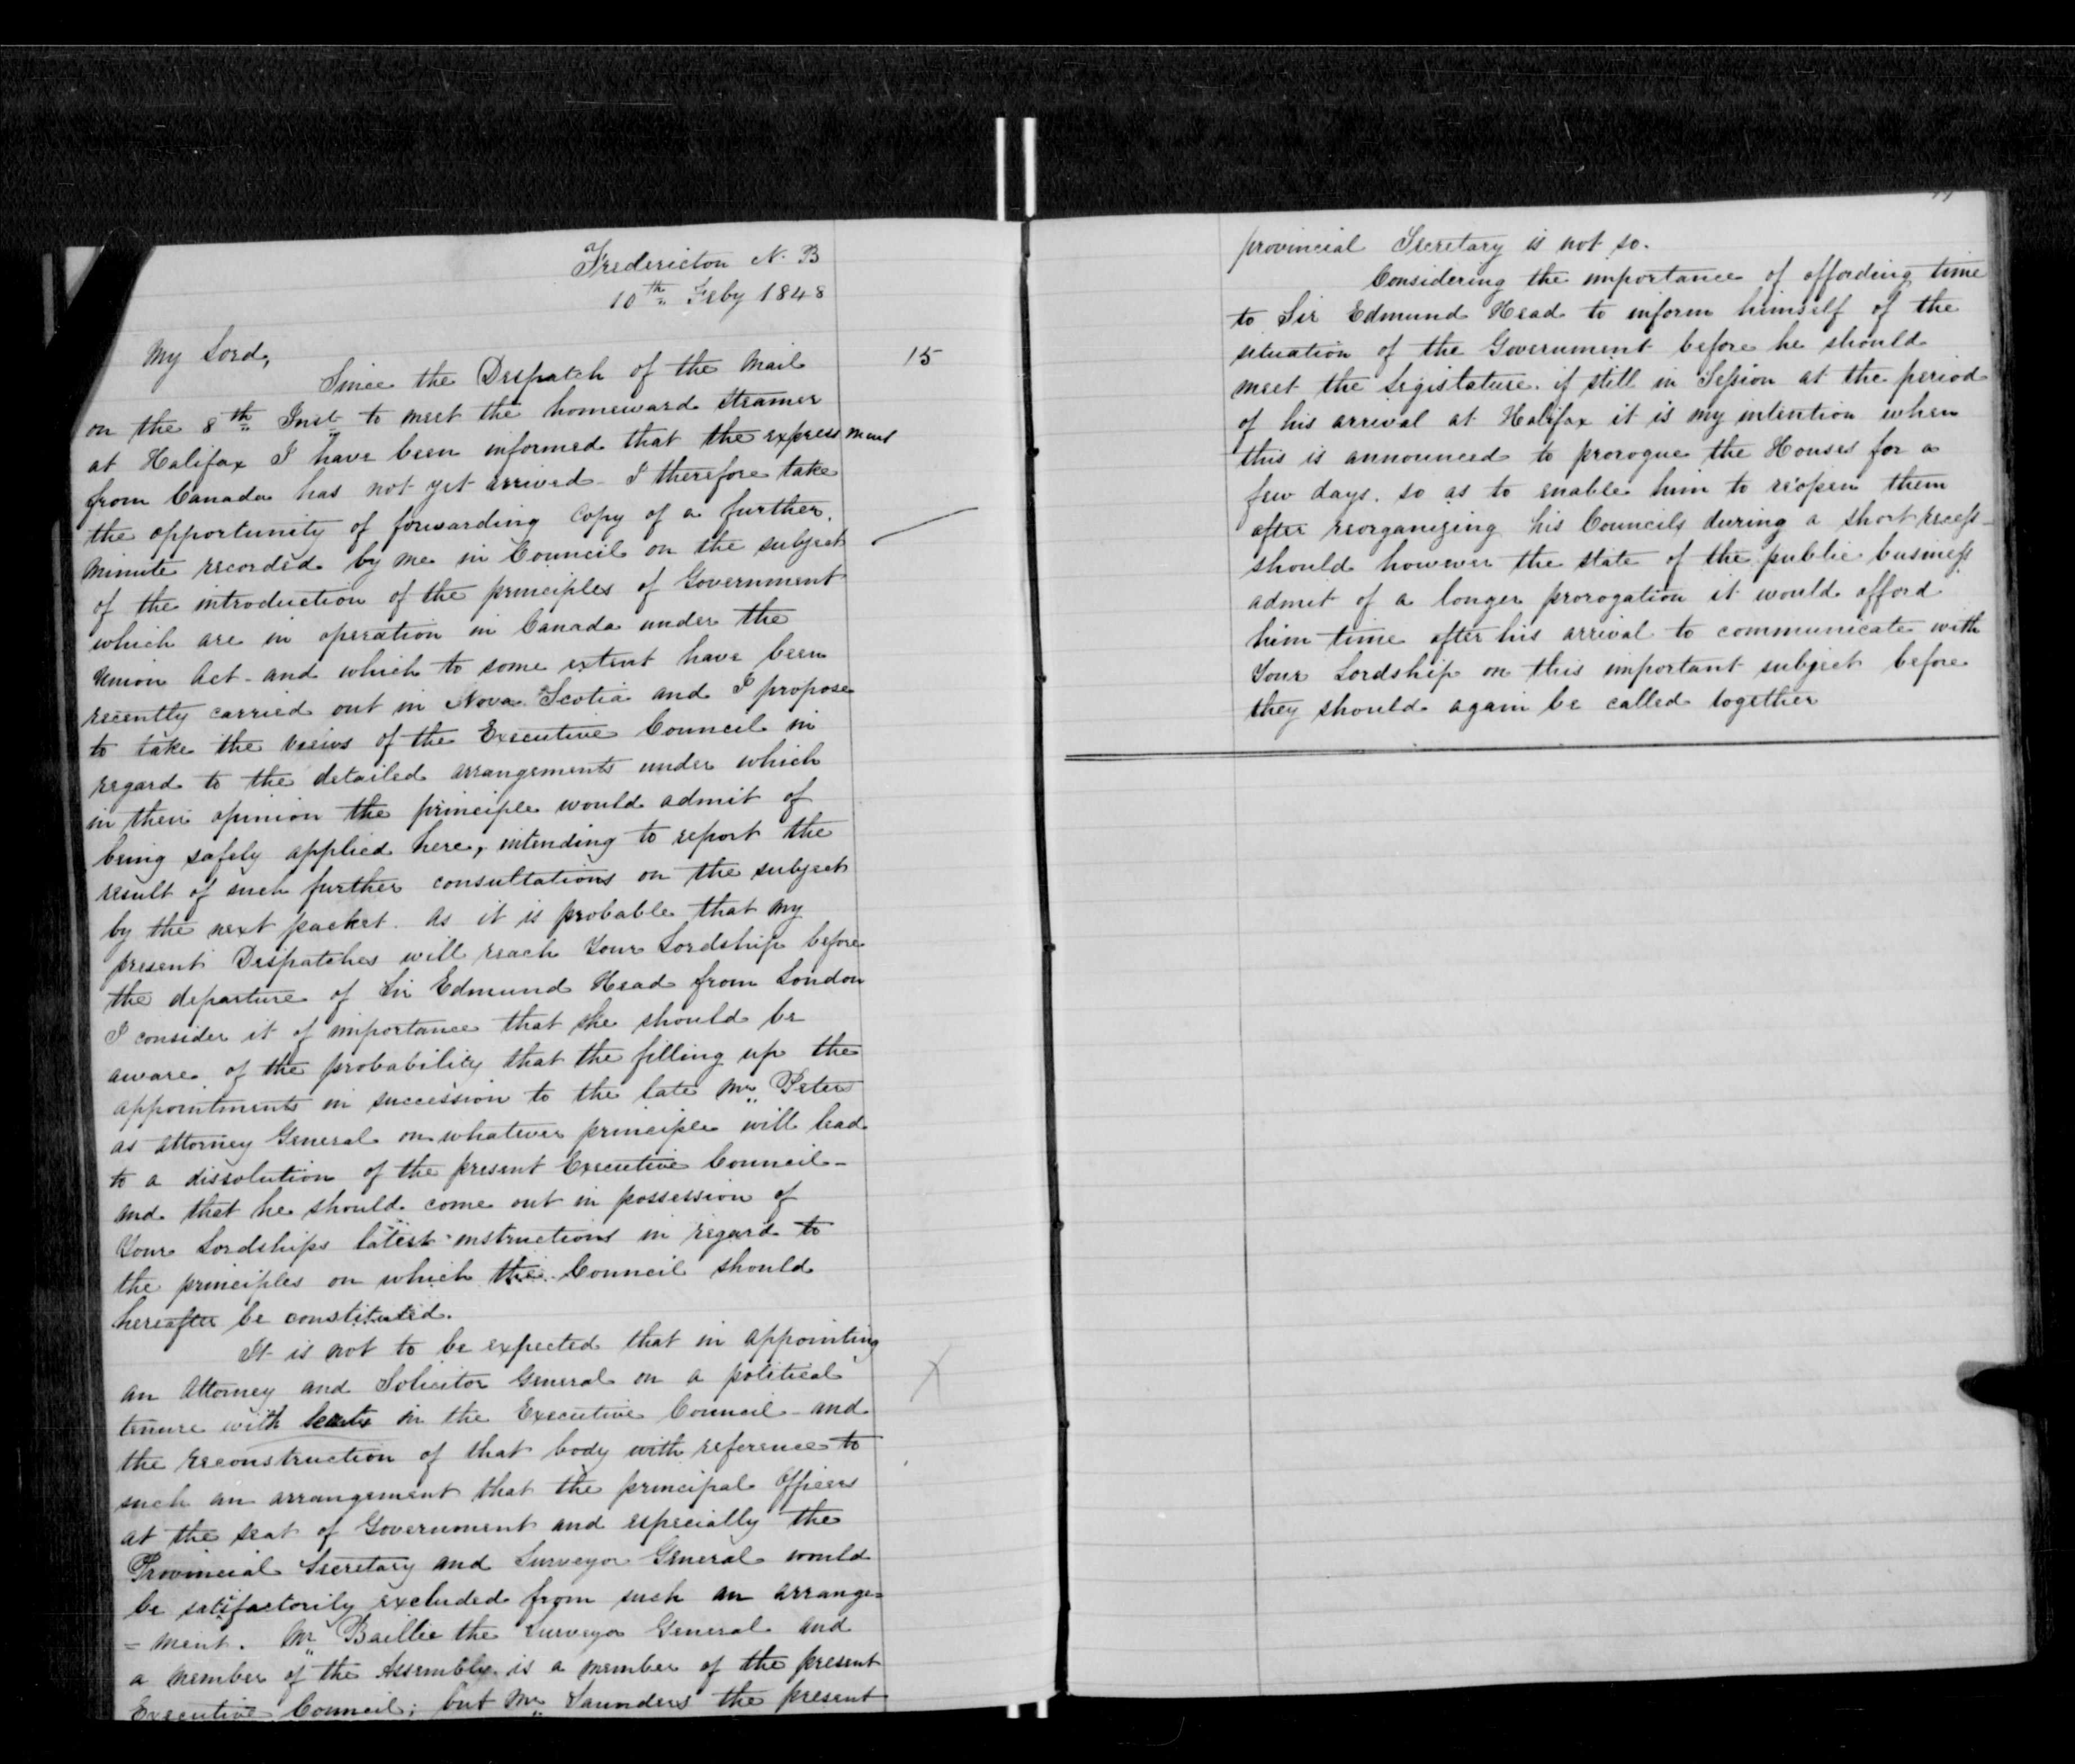 Fredericton N. B
10th Feby 1848
15
My Lord,
Since the Despatch of the Mail
on the 8th Inst to meet the homeward steamer
at Halifax I have been informed that the express Mail
from Canada has not yet arrived - I therefore take
the opportunity of forwarding Copy of a further
Minute recorded by me in Council on the subject
of the introduction of the principles of Government
which are in operation in Canada under the
Union Act - and which to some extent have been
recently carried out in Nova Scotia and I propose
to take the views of the Executive Council in
regard to the detailed arrangements under which
in their opinion the principle would admit of
being safely applied here, intending to report the
result of such further consultations on the subject
by the next packet. As it is probable that my
present Despatches will reach Your Lordship before
the departure of Sir Edmund Head from London
I consider it of importance that he should be
aware of the probability that the filling up the
appointments in succession to the late Mr Peters
as Attorney General on whatever principle will lead
to a dissolution of the present Executive Council -
and that he should come out in possession of
Your Lordships latest instructions in regard to
the principles on which the Council should
hereafter be constituted.
It is not to be expected that in appointing
an Attorney and Solicitor General on a political
tenure with seats in the Executive Council - and
the reconstruction of that body with reference to
such an arrangement that the principal Officers
at the seat of Government and especially the
Provincial Secretary and Surveyor General would
be satisfactorily excluded from such an arrange=
=ment. Mr Baillie the Surveyor General and
a member of the Assembly is a member of the present
Executive Council; but Mr Saunders the present
provincial Secretary is not so.
Considering the importance of affording time
to Sir Edmund Head to inform himself of the
situation of the Government before he should
meet the Legislature if still in Session at the period
of his arrival at Halifax it is my intention when
this is announced to prorogue the Houses for a
few days. so as to enable him to reopen them
after reorganizing his Councils during a short recess -
should however the state of the public business
admit of a longer prorogation it would afford
him time after his arrival to communicate with
Your Lordship on this important subject before
they should again be called together